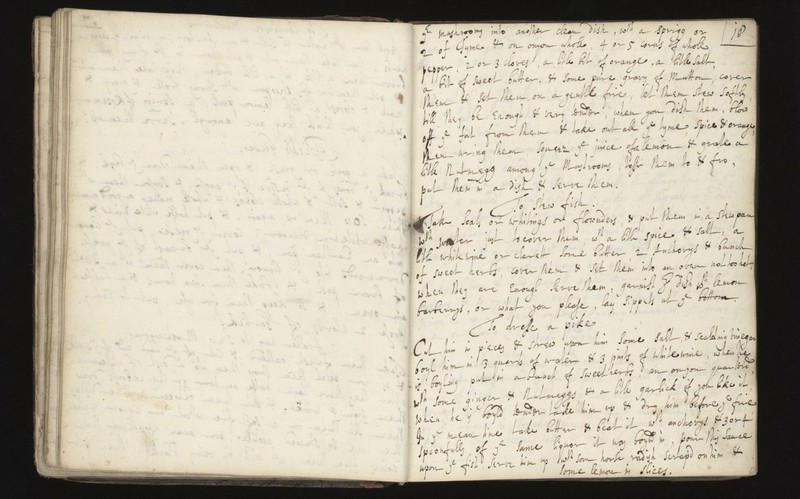 18
ye mushrooms into another clean dish, with a sprigg or
2 of Tyme & on onyon whole, 4 or 5 corns of whole
pepper, 2 or 3 cloves, a little bit of orange, a little salt,
a bit of sweet butter, & some pure gravy of Mutton, cover
them & set them on a gentle fire, let them stew softly
till they be Enough & very tender, when you dish them, blow
off ye fat from them & take out all ye tyme spice & orange
then wring them, squeez ye juice of a lemon & grate a
little Nutmegg among ye Mushrooms toss them to & fro,
put them in a Dish & serve them.
To stew fish.
Take Soals or whitings or flownders & put them in a stewpan
wth water just to cover them wth a little spice & salt, a
little white wine or claret some butter 2 Anchovys & bunch
of sweet herbs, cover them & set them into an oven not too hot
when they are Enough Serve them, garnish ye Dish wth lemon
barberrys, or what you please, lay sippets at ye bottom.
To dress a pike
Cut him in pieces & strew upon him some salt & scalding vinegar
boyl him in 3 quarts of water & 3 pints of white wine, when he
is boyling put in a bunch of sweet herbs an onyon quarter'd
wth some ginger & Nutmeggs & a little garlick if you like it
when he is boyl'd tender take him up & dry him before ye fire
In ye mean time take butter & beat it wth anchovys & 3 or 4
spoonfulls of ye same liquor it was boyl'd in, pour this sauce
upon ye fish serve him up wth som horse radish scraped on him &
some lemon in slices.